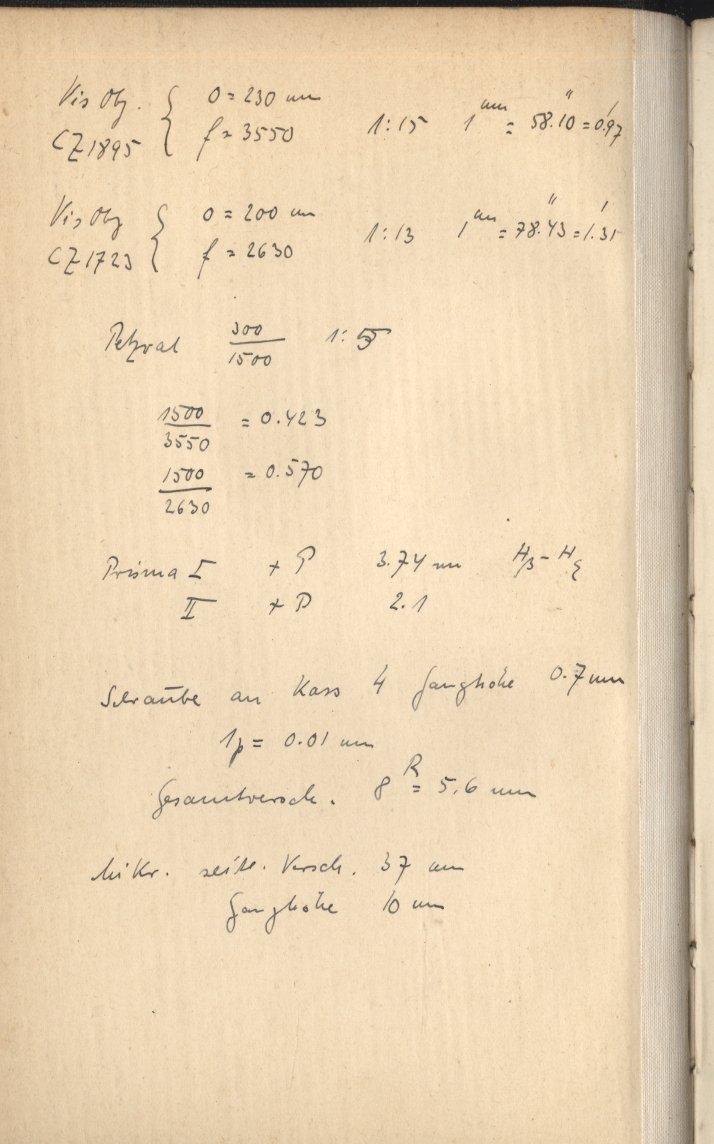 Vis Obj. { O = 230 mm
CZ 1895 f = 3550 1:15 1mm = 58.″10 = 0.′97
Vis Obj { O = 200 mm
CZ 1723 f = 2630 1:13 1mm = 78.″43 = 1.′31
Petzval 300/1500 1:5
1500/3550 = 0.423
1500/2630 = 0.570
Prisma I + P 3.74 mm Hβ – Hζ
II + P 2.1
Schraube an Kass 4 Ganghöhe 0.7 mm
1p = 0.01 mm
Gesamtversch. 8R = 5.6 mm
Mikr. seitl. Versch. 37 mm
Ganghöhe 10 mm